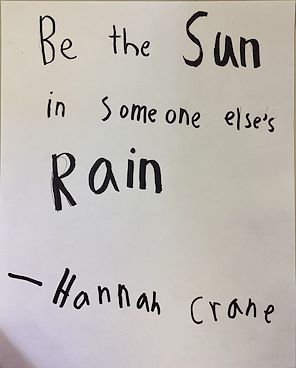 Be the Sun
in someone else's
Rain
— Hannah Crane